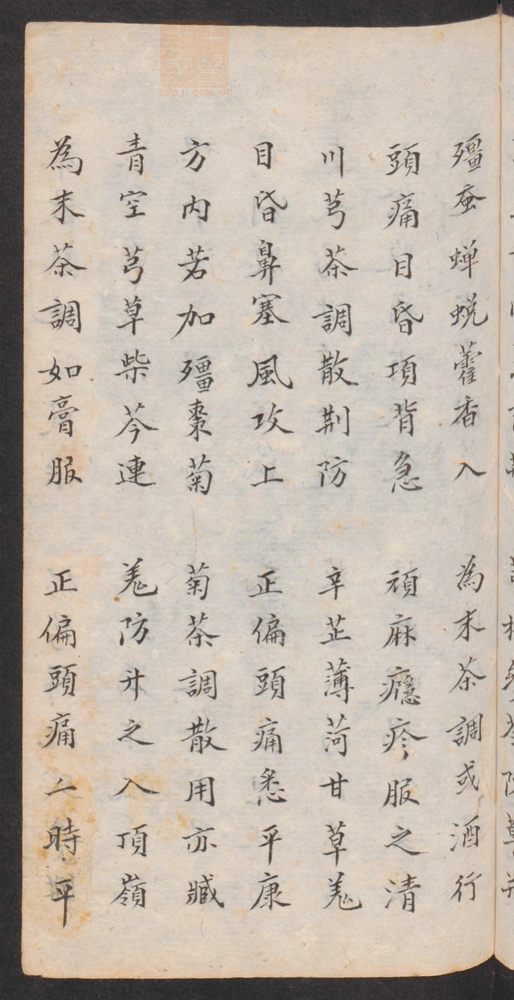 殭蚕蟬蛻藿香入 為末茶調或酒行
頭痛目昏項背急 頑麻癮疹服之清
川芎茶調散荆防 辛芷薄荷甘草羗
目昏鼻塞風攻上 正偏頭痛悉平康
方内若加殭棗菊 菊茶調散用亦臧
青空芎草柴芩連 羗防升之入頂巔
為末茶調如膏服 正偏頭痛一時平